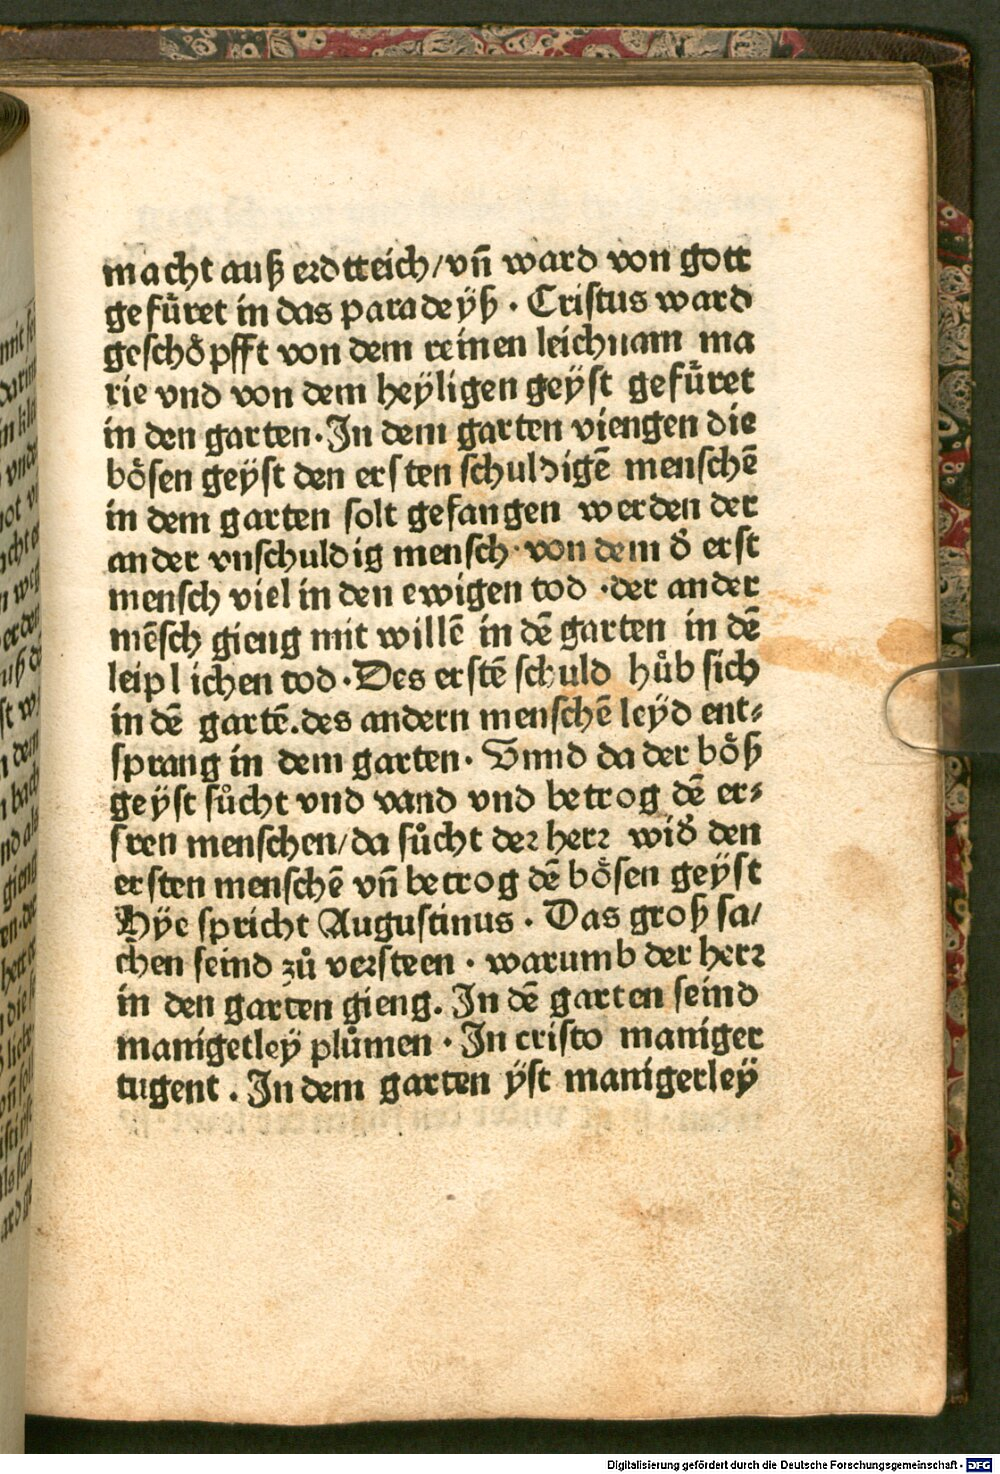 macht auß erdtreich/vn̄ ward von gott
gefüret in das paradeÿß . Cristus ward
geschöpfft von dem reinen leichnam ma
rie vnd von dem heÿligen geÿst gefüret
in den garten. In dem garten viengen die
bösen geÿst den ersten schuldigē menschē
in dem garten solt gefangen werden der
ander vnschuldig mensch. von dem d̄ erst
mensch viel in den ewigen tod .der ander
mēsch gieng mit willē in dē garten in dē
leiplichen tod. Des erstē schuld hůb sich
in dē gartē.des andern menschē leyd ent⸗
sprang in dem garten. Vnnd da der böß
geÿst sůcht vnd vand vnd betrog dē er⸗
sten menschen/da sůcht der herr wid̄ den
ersten menschē vn̄ betrog dē bösen geÿst
Hÿe spricht Augustinus . Das groß sa/
chen seind zů versteen . warumb der herr
in den garten gieng. In dē garten seind
manigerleÿ plůmen . In cristo maniger
tugent . In dem garten ÿst manigerleÿ
Digitalisierung gefördert durch die Deutsche Forschungsgemeinschaft - DFG